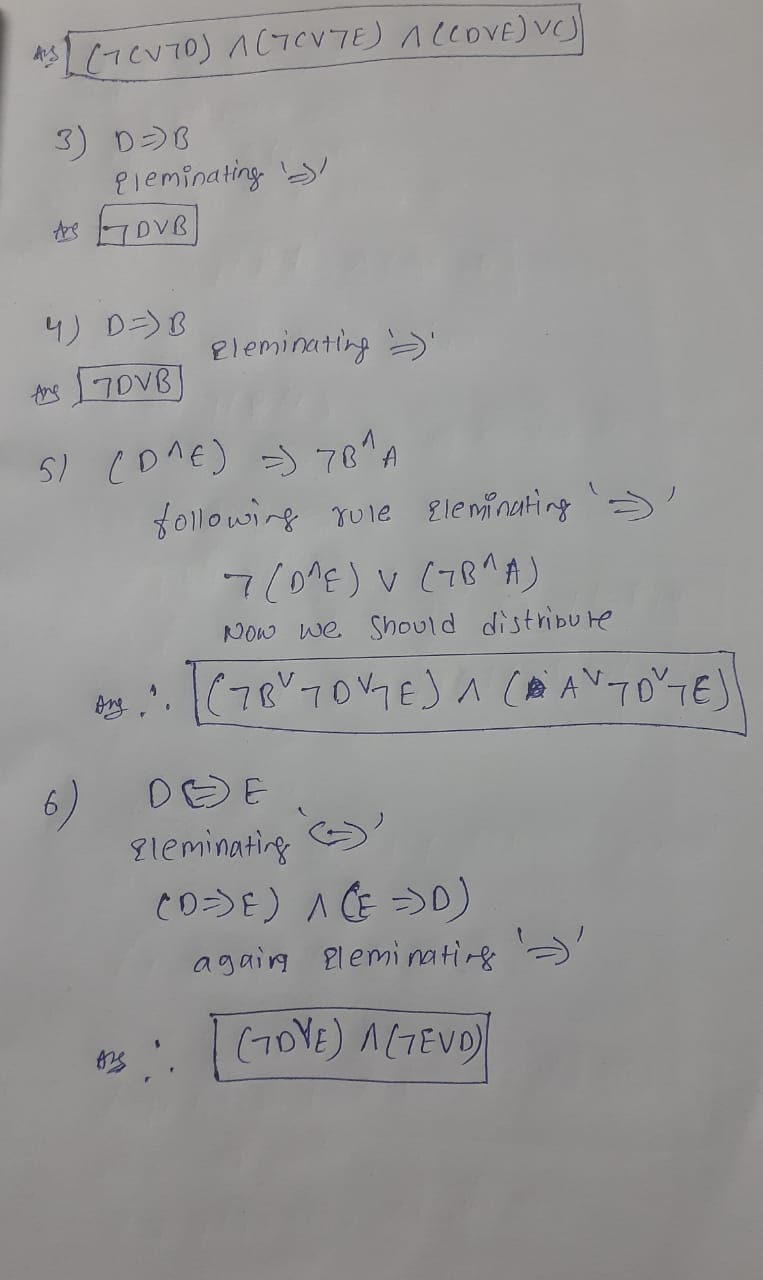 Ans (¬CV¬D) ∧ (¬CV¬E) ∧ ((DVE) VC)
3) D⇒B
eleminating '⇒'
Ans ¬DVB
4) D⇒B eleminating '⇒'
Ans ¬DVB
5) (D∧E) ⇒ ¬B∧A
following rule eleminating '⇒'
¬(D∧E) V (¬B∧A)
Now we should distribute
Ans ∴ (¬BV¬DV¬E) ∧ (AV¬DV¬E)
6) D⇔E
eleminating '⇔'
(D⇒E) ∧ (E⇒D)
again eleminating '⇒'
Ans ∴ (¬DVE) ∧ (¬EVD)